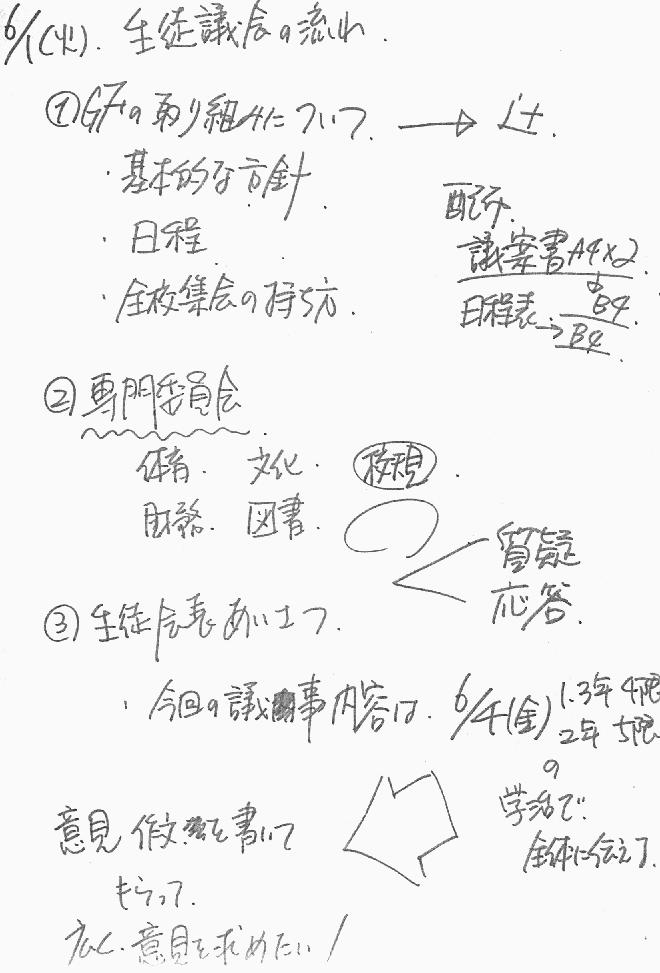 6/1(火). 生徒議会の流れ.
①GFの取り組みについて. → 辻.
・基本的な方針.
・日程.
・全校集会の持ち方.
配布.
議案書A4×2
→B4
日程表.→B4.
②専門委員会.
体育. 文化. 校規.
財務. 図書.
質疑
応答.
③生徒会長あいさつ.
・今回の議事内容は. 6/4(金) 1.3年 4限
2年 5限
の
学活で.
全体に伝えて.
意見 作文を書いて
もらって.
広く.意見を求めたい!